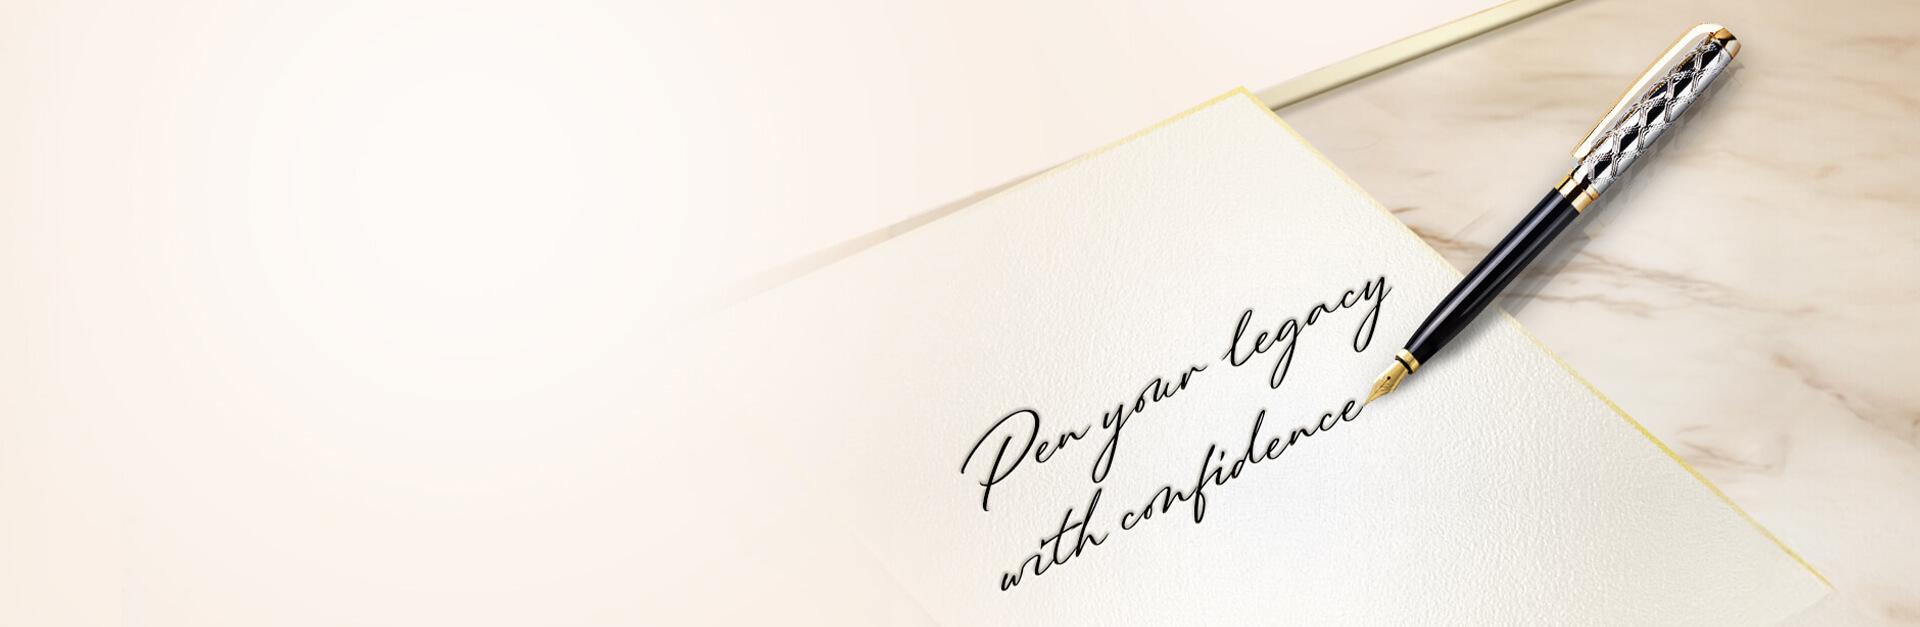 Pen your legacy
with confidence